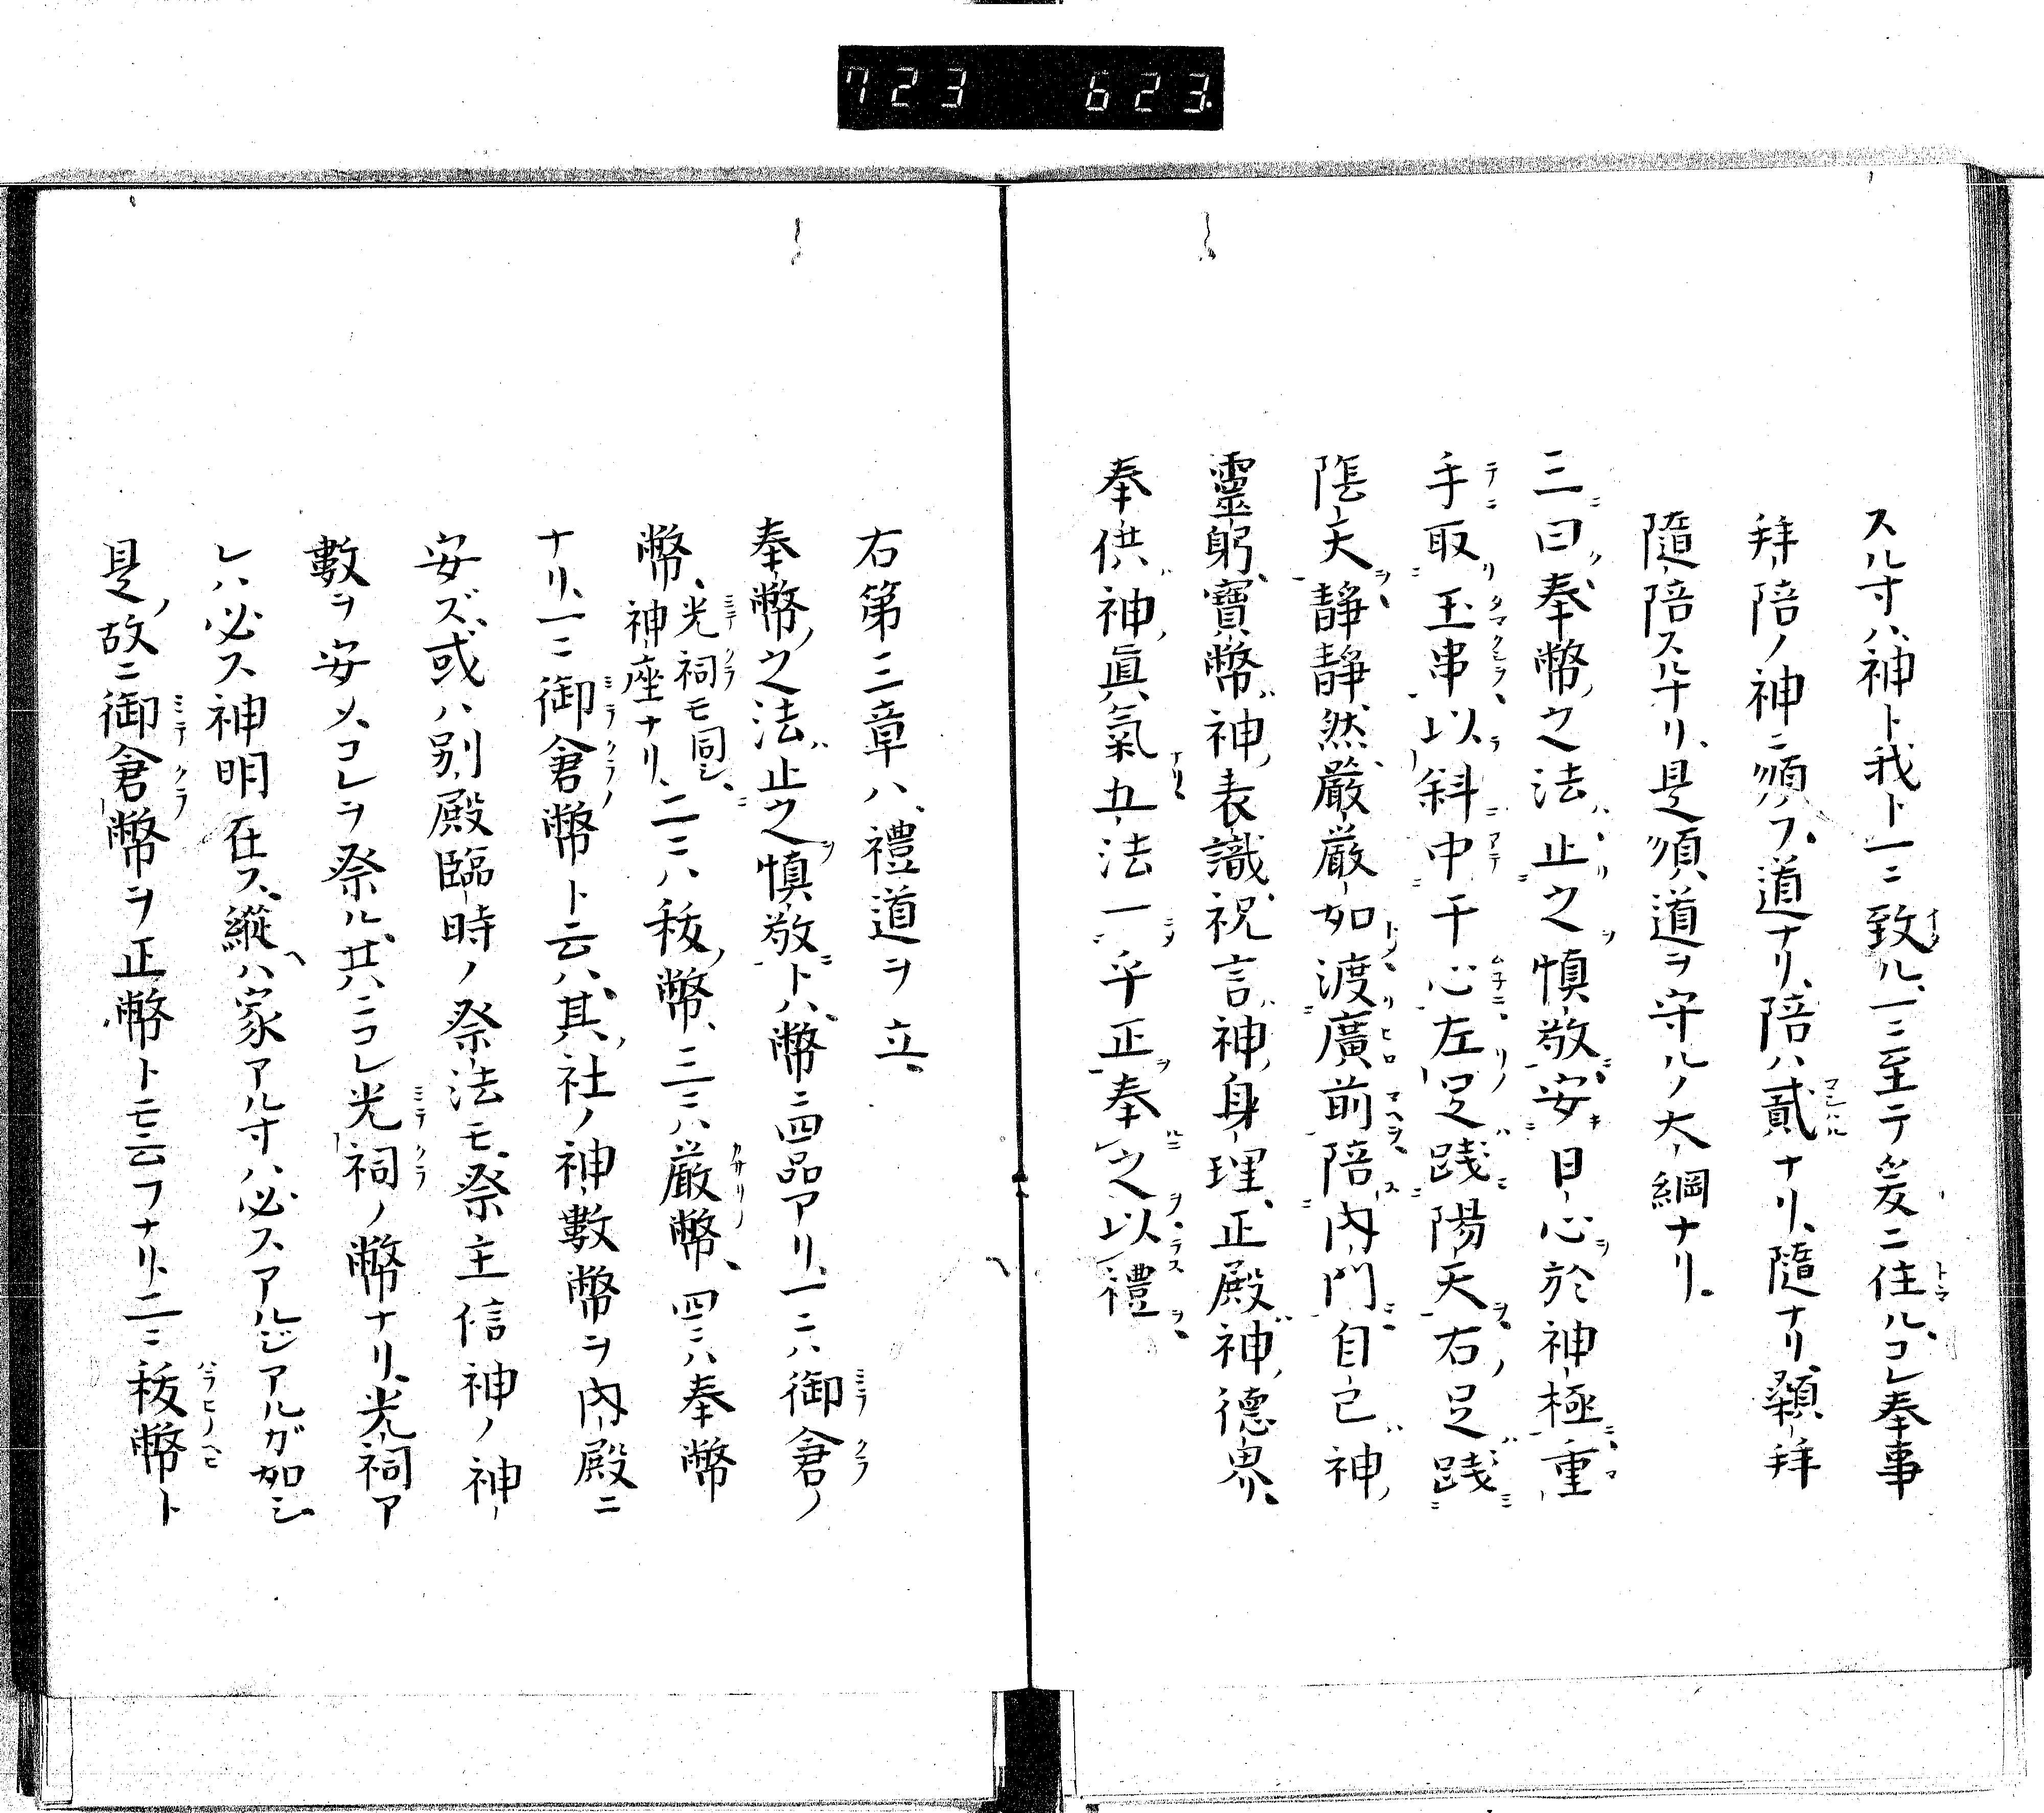 723 623
スル寸ハ、神ト我ト一ニ致ル、一ニ至テ爰ニ住ル、コレ奉事
拜陪ノ神ニ須フ道ナリ、陪ハ貳ナリ、隨ナリ、顙拜
隨陪スルナリ、是須道ヲ守ルノ大綱ナリ。
三曰奉幣之法止之慎敬安日心於神極重
手取玉串以斜中干心左足践陽天右足践
陰天、靜靜然、嚴嚴如渡廣前陪內門自己神
靈躬、寶幣神表識、祝言神身理、正殿神德界、
奉供神眞氣五法一乎正奉之以禮
右第三章ハ、禮道ヲ立、
奉幣之法止之慎敬トハ、幣ニ四品アリ、一ニハ御倉ノ
幣、光祠モ同シ、神座ナリ、二ニハ秡幣、三ニハ嚴幣、四ニハ奉幣
ナリ、一ニ御倉幣ト云ハ、其社ノ神數幣ヲ內殿ニ
安ズ、或ハ別殿臨時ノ祭法モ、祭主信神ノ神
數ヲ安メ、コレヲ祭ル、共ニコレ光祠ノ幣ナリ、光祠ア
レハ必ス神明在ス、縱ハ家アル寸ハ必スアルジアルガ如シ、
是故ニ御倉幣ヲ正幣トモ云フナリ、二ニ秡幣ト